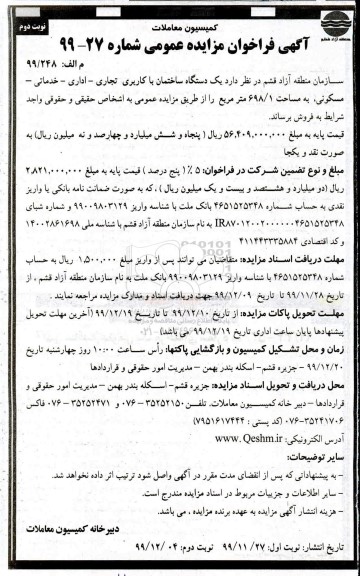 کمیسیون معاملات
نوبت دوم
آگهی فراخوان مزایده عمومی شماره ۲۷-۹۹
م الف: ۹۹/۲۴۸
سـازمان منطقه آزاد قشم در نظر دارد یک دستگاه ساختمان با کاربری تجاری - اداری - خدماتی -
مسکونی، به مساحت ۶۹۸/۱ متر مربع را از طریق مزایده عمومی به اشخاص حقیقی و حقوقی واجد
شرایط به فروش برساند.
قیمت پایه به مبلغ ۵۶,۴۰۹,۰۰۰,۰۰۰ ریال ( پنجاه و شش میلیارد و چهارصد و نه میلیون ریال) به
صورت نقد و یکجا
مبلغ و نوع تضمین شرکت در فراخوان: ۵ ٪ ( پنج درصد ) قیمت پایه به مبلغ ۲,۸۲۱,۰۰۰,۰۰۰
ریال (دو میلیارد و هشتصد و بیست و یک میلیون ریال ) ، که به صورت ضمانت نامه بانکی یا واریز
نقدی به حساب شـماره ۴۶۵۱۵۲۵۳۴۸ با شناسه واریز ۹۹۰۰۹۸۰۳۱۲۹ بانک ملت و شماره شبای
به نام سازمان منطقه آزاد قشم با شناسه ملی ۱۴۰۰۲۸۶۱۶۹۸
و کد اقتصادی ۴۱۱۴۴۳۳۳۵۸۸۴
مهلت دریافت اسناد مزایده: متقاضیان می توانند پس از واریز مبلغ ۱,۵۰۰,۰۰۰ ریال به حساب
شماره ۴۶۵۱۵۲۵۳۴۸ با شناسه واریز ۹۹۰۰۹۸۰۳۱۲۹ بانک ملت به نام سازمان منطقه آزاد قشم ، از
تاریخ ۹۹/۱۱/۲۸ تا تاریخ ۹۹/۱۲/۰۹ جهت دریافت اسناد و مدارک مزایده مراجعه نمایند .
مهلـت تحویل پاکات مزایده: از تاریخ ۹۹/۱۲/۱۰ تا تاریـخ ۹۹/۱۲/۱۹ (آخرین مهلت تحویل
پیشنهادها پایان ساعت اداری تاریخ ۹۹/۱۲/۱۹ می باشد)
زمان و محل تشـکیل کمیسیون و بازگشایی پاکتها: رأس سـاعت ۱۰:۰۰ روز چهارشنبه تاریخ
۹۹/۱۲/۲۰ - جزیره قشم- اسکله بندر بهمن - مدیریت امور حقوقی و قراردادها
محل دریافت و تحویل اسـناد مزایده: جزیره قشم- اسـکله بندر بهمن - مدیریت امور حقوقی و
قراردادها - دبیر خانه کمیسیون معاملات. تلفـن ۳۵۲۵۲۱۵۰-۰۷۶ و ۳۵۲۵۲۴۷۱-۰۷۶ فاکس
۳۵۲۴۱۷۰۶-۰۷۶ (کد پستی : ۷۹۵۱۶۱۷۴۴۴)
آدرس الکترونیکی: www. Qeshm.ir
سایر توضیحات:
- به پیشنهاداتی که پس از انقضای مدت مقرر در آگهی واصل شود ترتیب اثر داده نخواهد شد.
- سایر اطلاعات و جزییات مربوط در اسناد مزایده مندرج است.
- هزینه انتشار آگهی مزایده به عهده برنده مزایده ، می باشد.
دبیرخانه کمیسیون معاملات
تاریخ انتشار: نوبت اول: ۹۹/۱۱/۲۷ نوبت دوم: ۹۹/۱۲/۰۴